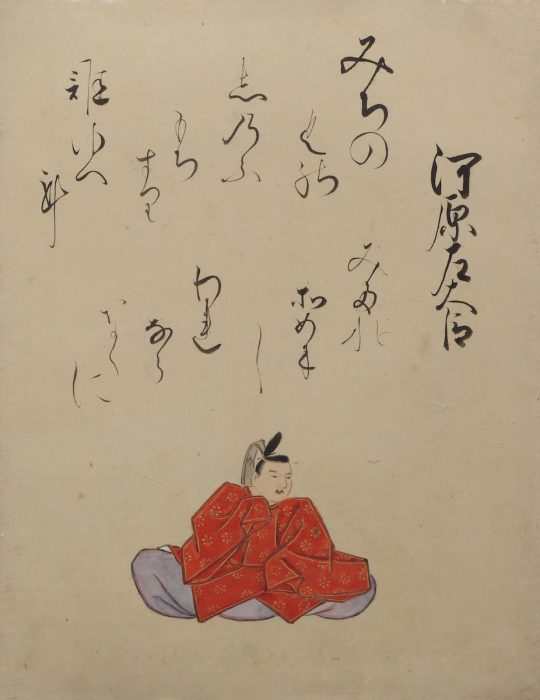 河原左大臣
みちの
く能
志のふ
もち
すり
誰ゆへ
尓
みたれ
そめ尓
し
われ
なら
なくに